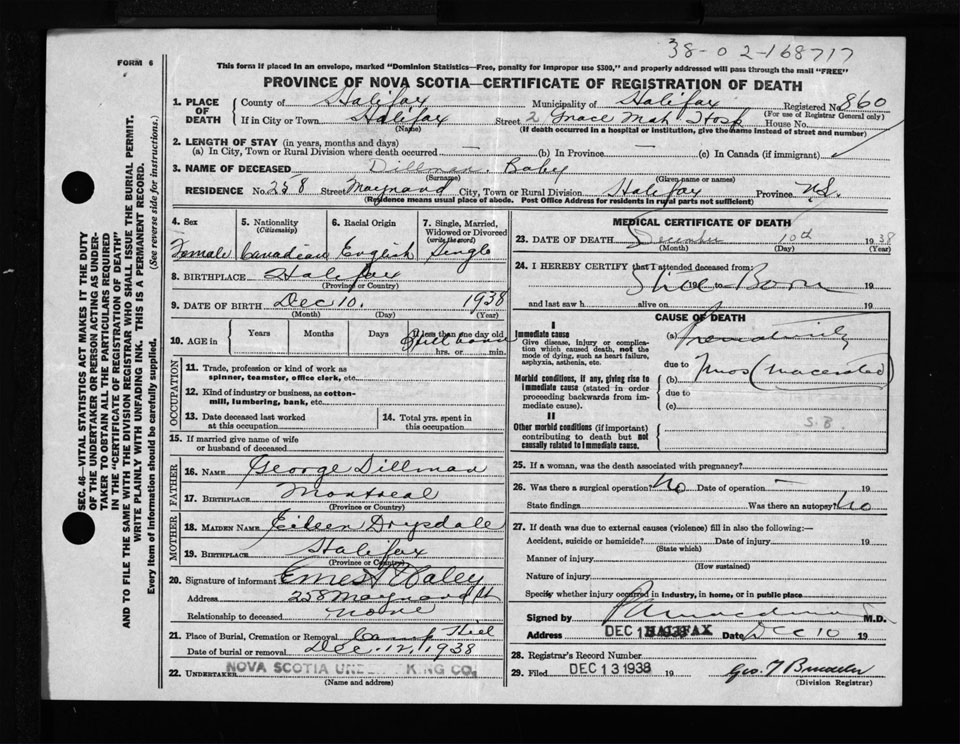 38-02-168717
FORM 6
This form if placed in an envelope, marked "Dominion Statistics—Free, penalty for improper use $300," and properly addressed will pass through the mail "FREE"
PROVINCE OF NOVA SCOTIA—CERTIFICATE OF REGISTRATION OF DEATH
1. PLACE OF DEATH
County of Halifax Municipality of Halifax Registered No. 860
(For use of Registrar General only)
If in City or Town Halifax Street 2 Grace Mat Hosp House No.
(Name) (If death occurred in a hospital or institution, give the name instead of street and number)
2. LENGTH OF STAY (in years, months and days)
(a) In City, Town or Rural Division where death occurred — (b) In Province — (c) In Canada (if immigrant)
3. NAME OF DECEASED Dillman, Baby
(Surname) (Given name or names)
RESIDENCE No. 258 Street Maynard City, Town or Rural Division Halifax Province N.S.
(Residence means usual place of abode. Post Office Address for residents in rural parts not sufficient)
4. Sex 5. Nationality (Citizenship) 6. Racial Origin 7. Single, Married, Widowed or Divorced (write the word)
Female Canadian English Single
8. BIRTHPLACE Halifax
(Province or Country)
9. DATE OF BIRTH Dec 10. 1938
(Month) (Day) (Year)
10. AGE in Years Months Days If less than one day old
Still born
hrs. or min.
OCCUPATION
11. Trade, profession or kind of work as spinner, teamster, office clerk, etc.
12. Kind of industry or business, as cotton-mill, lumbering, bank, etc.
13. Date deceased last worked at this occupation
14. Total yrs. spent in this occupation
15. If married give name of wife or husband of deceased
FATHER
16. NAME George Dillman
17. BIRTHPLACE Montreal
(Province or Country)
MOTHER
18. MAIDEN NAME Eileen Drysdale
19. BIRTHPLACE Halifax
(Province or Country)
20. Signature of informant Ernest Haley
Address 258 Maynard St
Relationship to deceased none
21. Place of Burial, Cremation or Removal Camp Hill
Date of burial or removal Dec. 12, 1938
22. UNDERTAKER NOVA SCOTIA UNDERTAKING CO.
(Name and address)
MEDICAL CERTIFICATE OF DEATH
23. DATE OF DEATH December 10th 1938
(Month) (Day) (Year)
24. I HEREBY CERTIFY that I attended deceased from:
Still Born
19 to 19
and last saw h alive on 19
CAUSE OF DEATH
I
Immediate cause
Give disease, injury or complication which caused death, not the mode of dying, such as heart failure, asphyxia, asthenia, etc.
(a) Prematurity
due to
Morbid conditions, if any, giving rise to immediate cause (stated in order proceeding backwards from immediate cause).
(b) 7 mos (macerated)
due to
(c)
II
Other morbid conditions (if important) contributing to death but not causally related to immediate cause.
S.B.
25. If a woman, was the death associated with pregnancy?
26. Was there a surgical operation? No Date of operation — 19
State findings Was there an autopsy? No
27. If death was due to external causes (violence) fill in also the following:—
Accident, suicide or homicide? Date of injury 19
(State which)
Manner of injury
(How sustained)
Nature of injury
Specify whether injury occurred in industry, in home, or in public place
Signed by M.D.
Address HALIFAX Date Dec 10 19
28. Registrar's Record Number
29. Filed DEC 13 1938 19
(Division Registrar)
SEC. 46—VITAL STATISTICS ACT MAKES IT THE DUTY
OF THE UNDERTAKER OR PERSON ACTING AS UNDER-
TAKER TO OBTAIN ALL THE PARTICULARS REQUIRED
IN THE "CERTIFICATE OF REGISTRATION OF DEATH"
AND TO FILE THE SAME WITH THE DIVISION REGISTRAR WHO SHALL ISSUE THE BURIAL PERMIT.
WRITE PLAINLY WITH UNFADING INK. THIS IS A PERMANENT RECORD.
Every item of information should be carefully supplied. (See reverse side for instructions.)